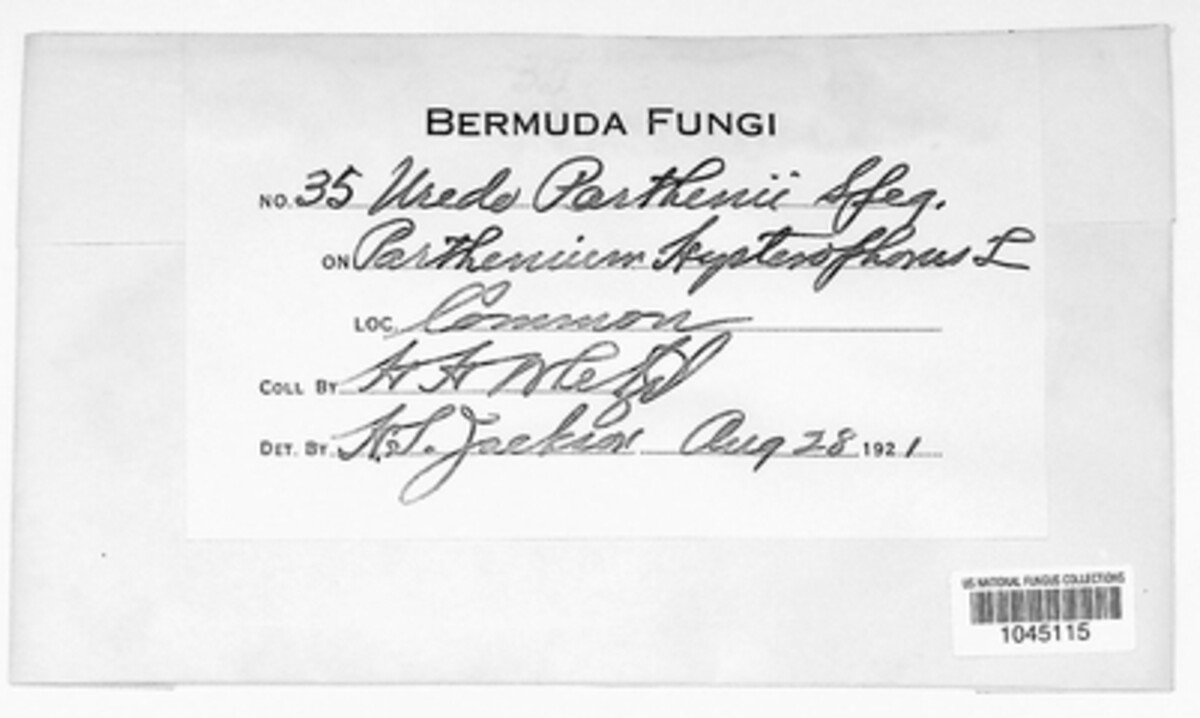 BERMUDA FUNGI
NO. 35 Uredo Parthenii Speg.
ON Parthenium Hysterophorus L
LOC. Common
COLL BY H H Whetzel
DET. BY. H.S. Jackson Aug 28 1921
US NATIONAL FUNGUS COLLECTIONS
1045115